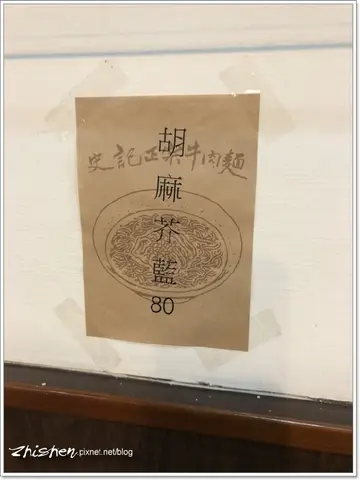 史記正宗牛肉麵
胡麻芥藍
80
zhishen.pixnet.net/blog